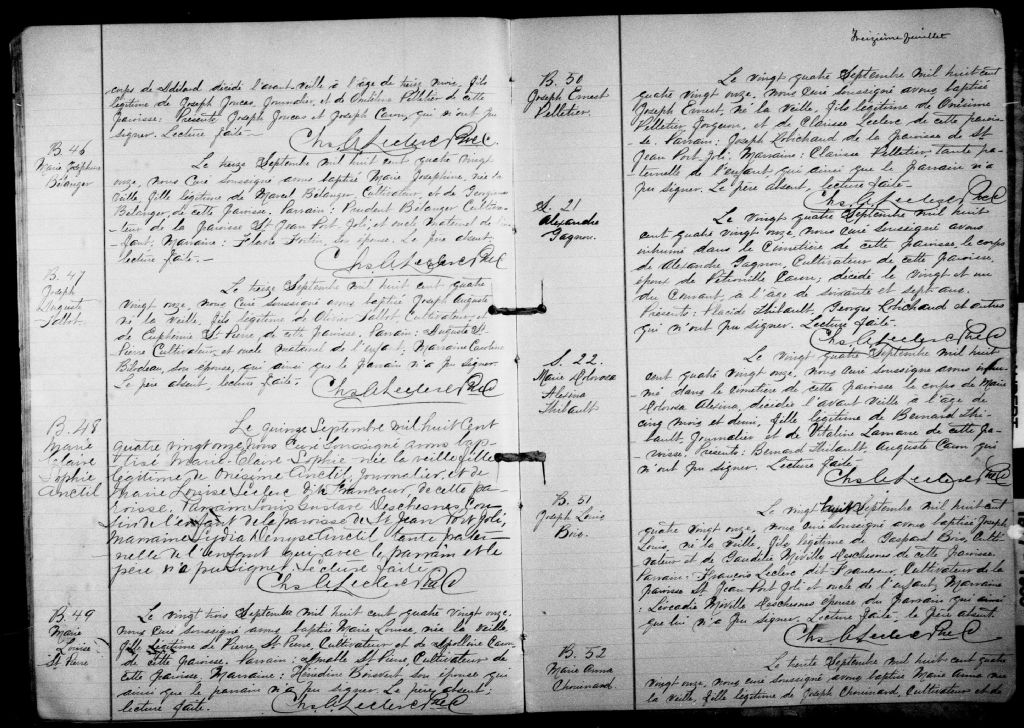 corps de décédé l'avant veille à l'âge de treize mois, fils
légitime de Joseph Joncas, Journalier, et de Pelletier de cette
paroisse: Présents Joseph Joncas et Joseph Caron, qui n'ont pu
signer. Lecture faite.-
Chs A Leclerc Ptre C
B. 46
Marie Joséphine
Bélanger
Le treize Septembre mil huit cent quatre vingt
onze, nous Curé soussigné avons baptisé Marie Josephine, née la
veille, fille légitime de Marcel Bélanger, Cultivateur, et de Georgina
Belanger, de cette paroisse. Parrain: Prudent Bélanger Cultiva-
teur de la paroisse St Jean Port Joli, et oncle maternel de l'en-
fant; Marraine: Flavie Fortin, son épouse. Le père absent.
lecture faite.-
Chs A Leclerc Ptre C
B. 47
Joseph
Auguste
Pallot
Le treize Septembre mil huit cent quatre
vingt onze, nous Curé soussigné avons baptisé Joseph Auguste
né la veille, fils légitime de Olivier Pallot Cultivateur, et
de Euphemie St Pierre, de cette paroisse. Parrain: Auguste St-
Pierre Cultivateur, et oncle maternel de l'enfant; Marraine Caroline
Bilodeau, son épouse, qui ainsi que le Parrain n'a pu signer
Le père absent, lecture faite.-
Chs A Leclerc Ptre C
B. 48
Marie
Claire
Sophie
Anctil
Le quinze Septembre mil huit Cent
quatre vingt onze Nous Curé Soussigné avons bap-
tisé Marie-Claire Sophie née la veille fille
légitime de Onésime Anctil, Journalier, et de
Marie Louise Leclerc dit Francoeur de cette pa-
roisse, Parrain Louis Gustave Deschesnes Cou-
sin de l'enfant de la paroisse de St Jean Port Joli,
marraine Lydia Anctil tante pater-
nelle de l'enfant qui avec le parrain et le
père n'a pu signer. Lecture faite
Chs A Leclerc Ptre C
B. 49
Marie
Louise
St Pierre
Le vingt trois Septembre mil huit cent quatre vingt onze
nous Curé soussigné avons baptisé Marie Louise, née la veille
fille légitime de Pierre St Pierre Cultivateur et de Apolline Caron
de cette paroisse. Parrain: Amable St Pierre, Cultivateur de
cette paroisse Marraine: Henedine Boisvert son épouse qui
ainsi que le parrain n'a pu signer. Le père absent,
lecture faite.
Chs A Leclerc Ptre C
Treizième feuillet
B. 50
Joseph Ernest
Pelletier.
Le vingt quatre Septembre mil huit cent
quatre vingt onze, nous Curé soussigné avons baptisé
Joseph Ernest, né la veille, fils légitime de Onésime
Pelletier, forgeron, et de Clarisse Leclerc de cette parois-
se. Parrain: Joseph Robichaud de la paroisse de St
Jean Port Joli. Marraine: Clarisse Pelletier tante pa-
ternelle de l'enfant qui ainsi que le parrain n'a
pu signer. Le père absent, lecture faite.-
Chs A Leclerc Ptre C
S. 21
Alexandre
Gagnon.
Le vingt quatre Septembre mil huit
cent quatre vingt onze, nous Curé soussigné avons
inhumé dans le Cimetière de cette paroisse le corps
de Alexandre Gagnon, Cultivateur de cette paroisse,
époux de Pétronille Caron, décédé le vingt et un
du Courant, à l'âge de soixante et sept ans.
Présents: Placide Thibault, Georges Robichaud et autres
qui n'ont pu signer. Lecture faite.
Chs A Leclerc Ptre C
S. 22.
Marie
Alexina
Thibault
Le vingt quatre Septembre mil huit
cent quatre vingt onze, nous Curé soussigné avons inhu-
mé dans le cimetière de cette paroisse le corps de Marie
Alexina, décédée l'avant veille à l'âge de
cinq mois et demi, fille légitime de Bernard Thi-
bault, Journalier et de Vitaline Lamarre de cette pa-
roisse. Présents: Bernard Thibault, Auguste Caron qui
n'ont pu signer. Lecture faite.
Chs A Leclerc Ptre C
B. 51
Joseph Louis
Bois.
Le vingt huit Septembre mil huit cent
quatre vingt onze, nous Curé soussigné avons baptisé Joseph
Louis, né la veille, fils légitime de Gaspard Bois, Culti-
vateur et de Claudia Miville Deschesnes de cette paroisse.
Parrain: François Leclerc dit Francoeur, Cultivateur de la
paroisse St Jean Port Joli et oncle de l'enfant, Marraine
: Léocadie Miville Deschesnes épouse du Parrain qui ainsi
que lui n'a pu signer. Lecture faite, le père absent.
Chs A Leclerc Ptre C
B. 52
Marie Anna
Chouinard.
Le trente Septembre mil huit cent quatre
vingt onze, nous Curé soussigné avons baptisé Marie Anna née
la veille, fille légitime de Joseph Chouinard, Cultivateur et de